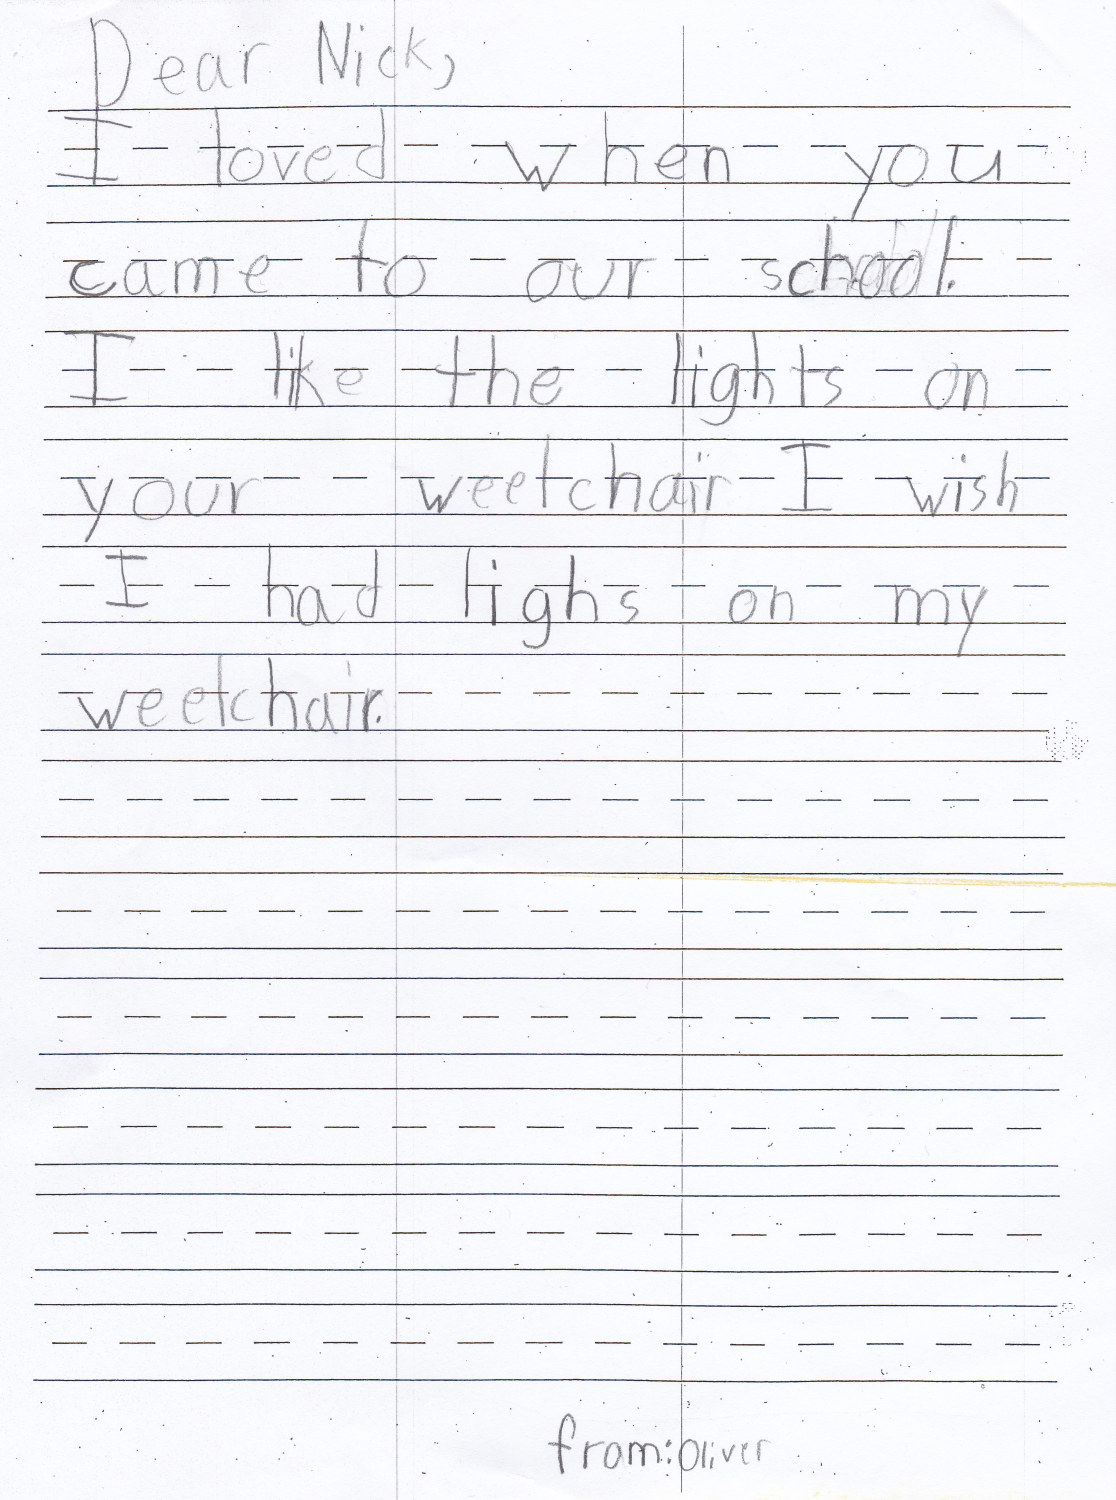 Dear Nick,
I loved when you
came to our school.
I like the lights on
your weelchair I wish
I had lighs on my
weelchair.
from: Oliver